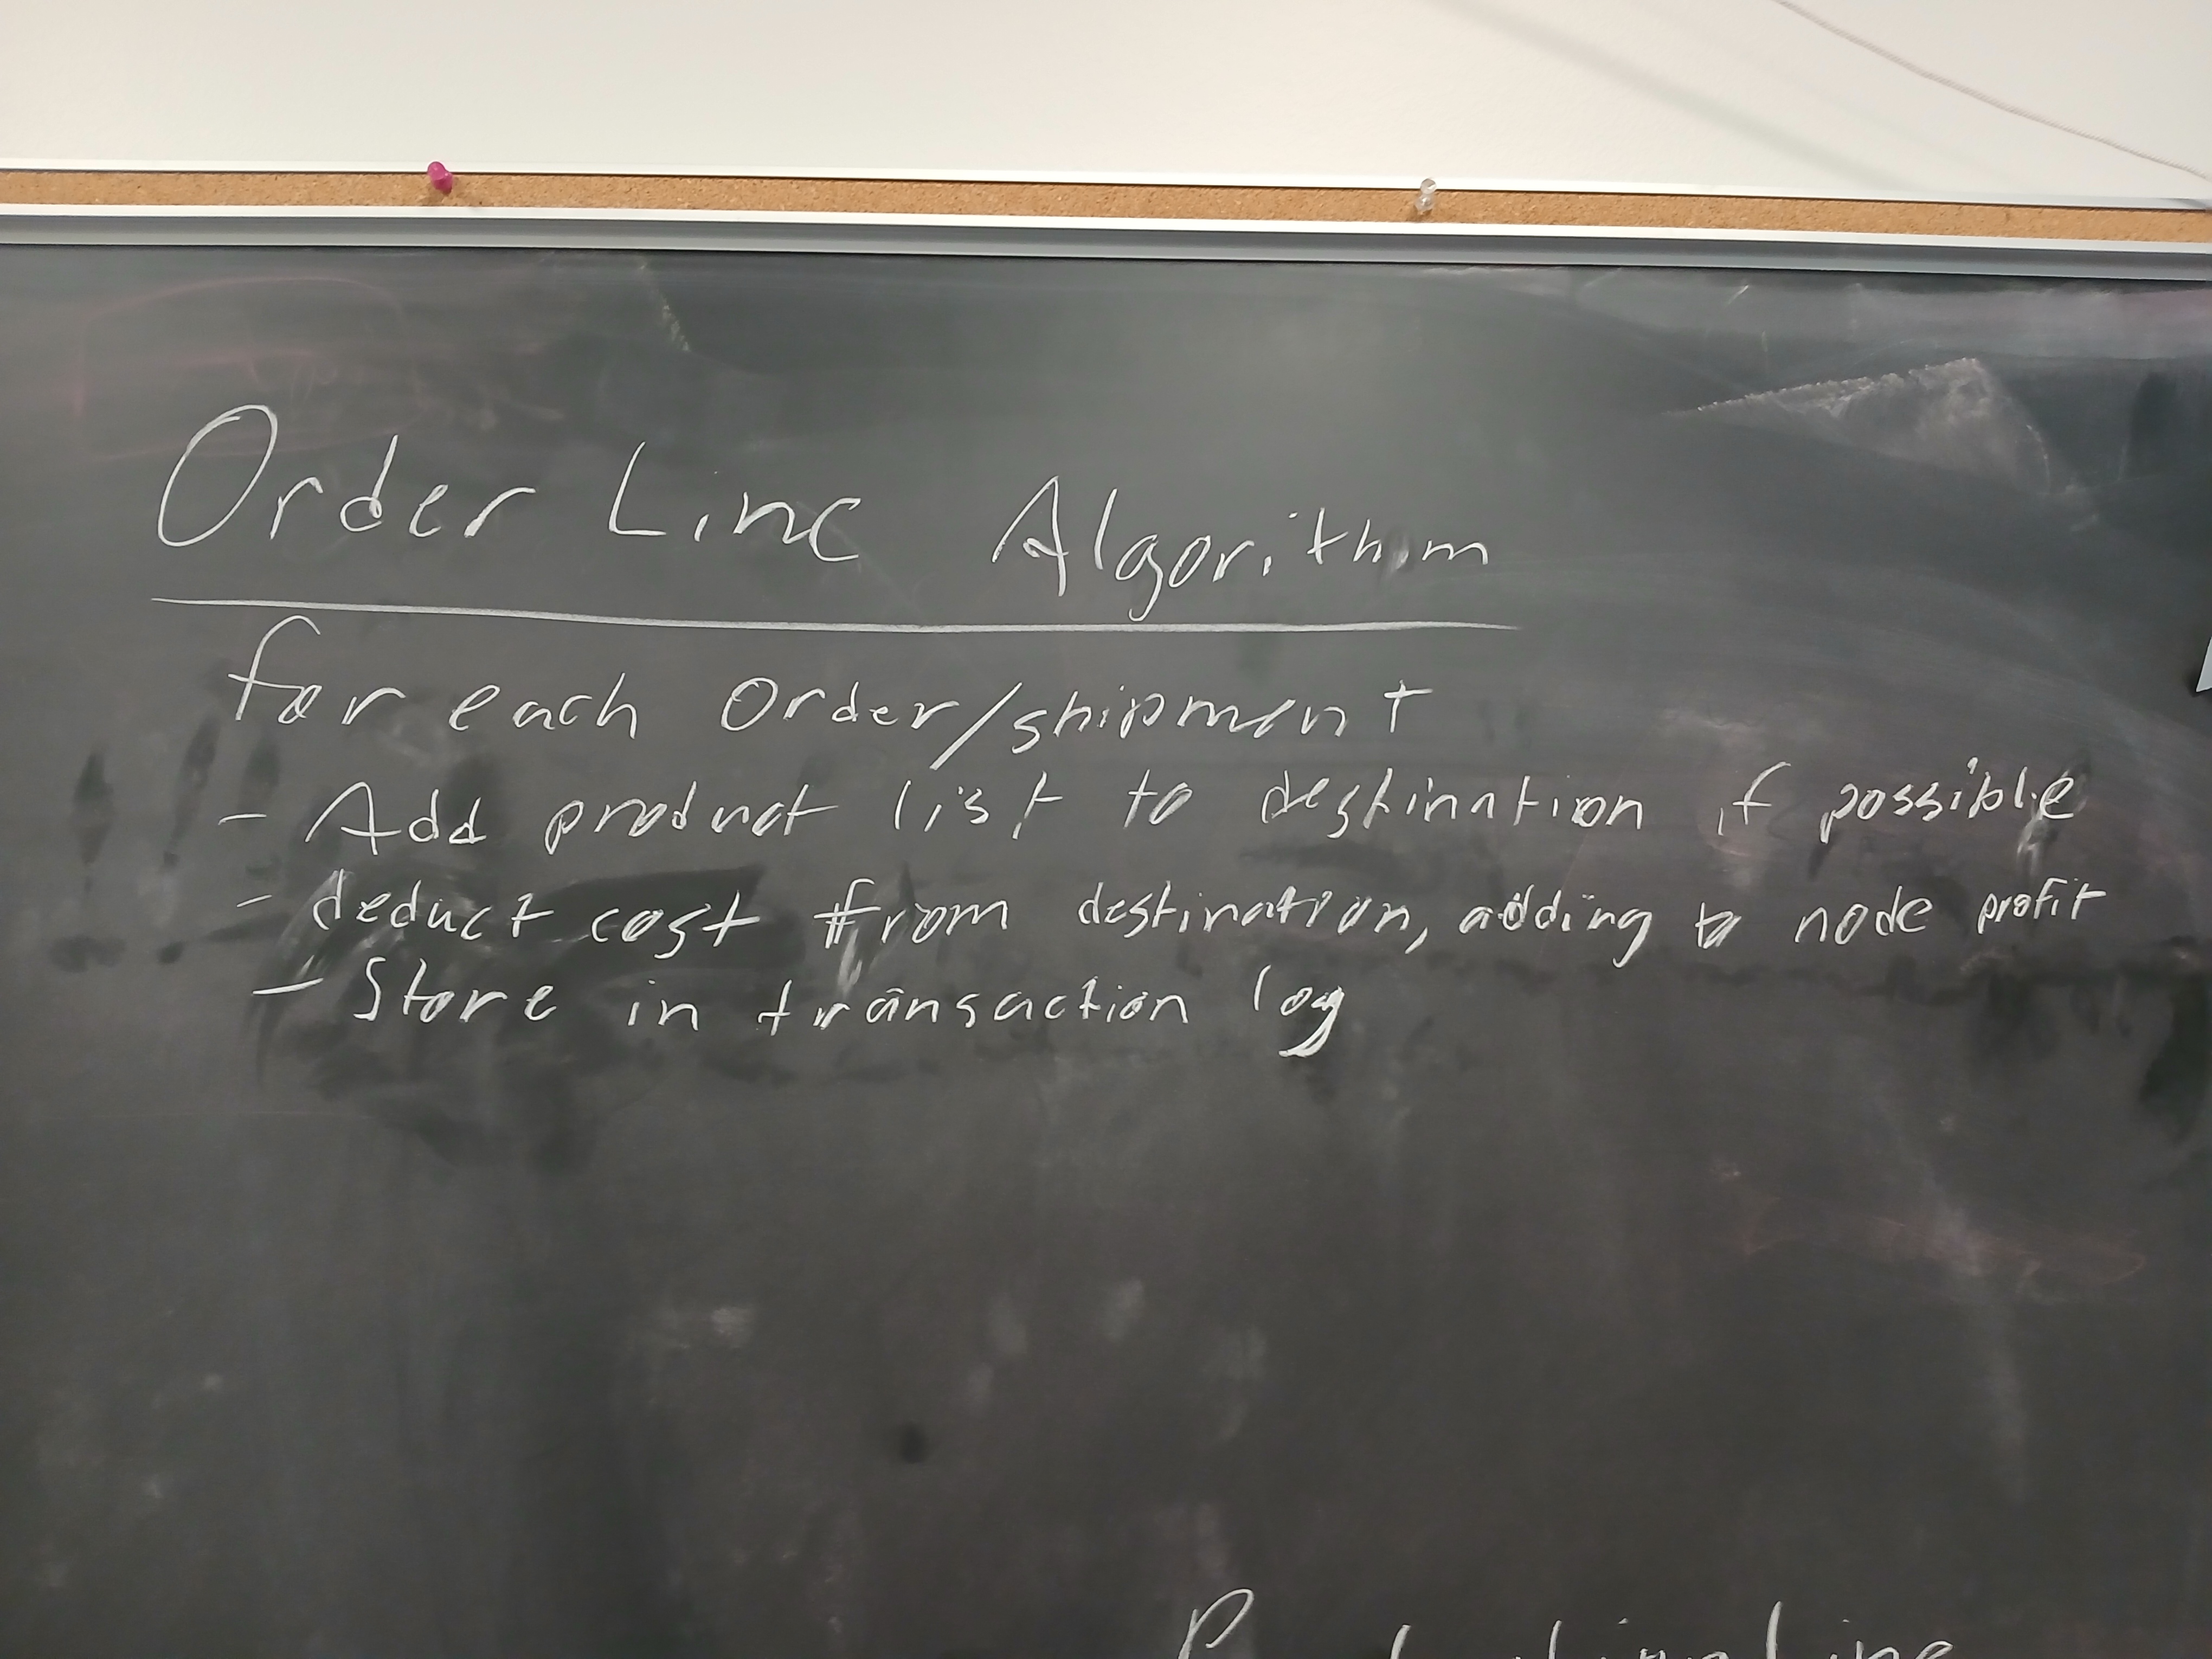 Order Line Algorithm
for each Order/shipment
- Add product list to destination if possible
- deduct cost from destination, adding to node profit
- Store in transaction log
Line